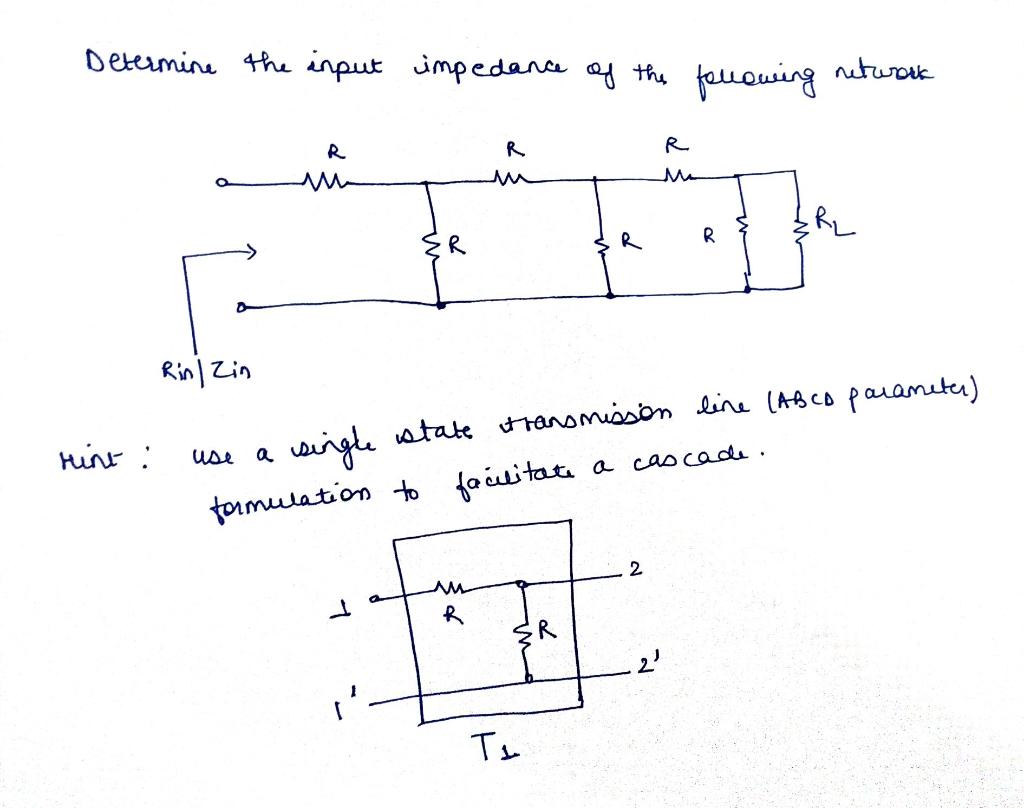 Determine the input impedance of the following network
R R R
R R R RL
Rin | Zin
Hint : use a single state transmission line (ABCD parameter)
formulation to facilitate a cascade.
1 R R 2
1' 2'
T1